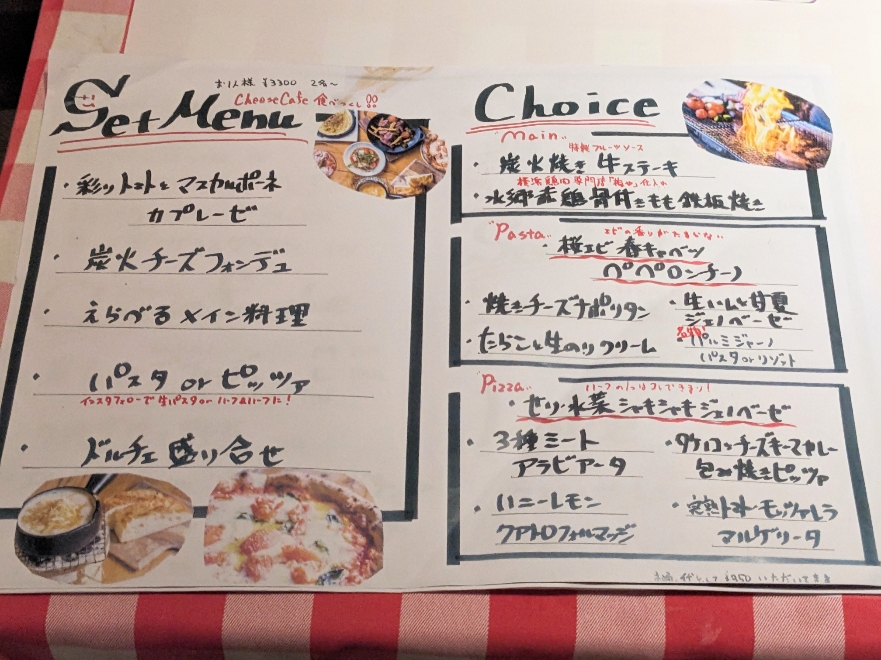 Set Menu
お1人様 ¥3300 2名〜
CheeseCafe 食べつくし!!
・彩りトマトとマスカルポーネ
カプレーゼ
・炭火チーズフォンデュ
・えらべるメイン料理
・パスタ or ピッツァ
インスタフォローで生パスタorハーフ&ハーフに!
・ドルチェ盛り合せ
Choice
"Main"
特製フルーツソース
・炭火焼き牛ステーキ
横浜鶏肉専門店「梅や」仕入れ
・水郷赤鶏骨付きもも鉄板焼き
"Pasta"
エビの香りがたまらない
・桜エビ 春キャベツ
ペペロンチーノ
・焼きチーズナポリタン
・たらこと生のりクリーム
・生ハムと甘夏
ジェノベーゼ
名物!
・パルミジャーノ
パスタorリゾット
"Pizza"
ハーフ&ハーフもできます!
・セリ・水菜 シャキシャキジェノベーゼ
・3種ミート
アラビアータ
・ハニーレモン
クアトロフォルマッジ
・タケノコ チーズキーマカレー
包み焼きピッツァ
・完熟トマト・モッツァレラ
マルゲリータ
¥350 いただいてます